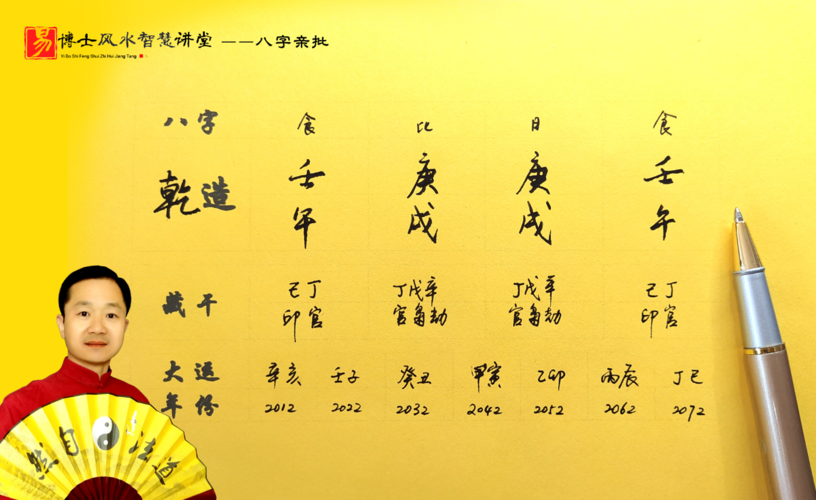 易 博士风水智慧讲堂 ——八字亲批
Yi Bo Shi Feng Shui Zhi Hui Jiang Tang
八字 食 比 日 食
乾造 壬 庚 庚 壬
午 戌 戌 午
藏干 己丁 丁戊辛 丁戊辛 己丁
印官 官枭劫 官枭劫 印官
大運 辛亥 壬子 癸丑 甲寅 乙卯 丙辰 丁巳
年份 2012 2022 2032 2042 2052 2062 2072
道法自然